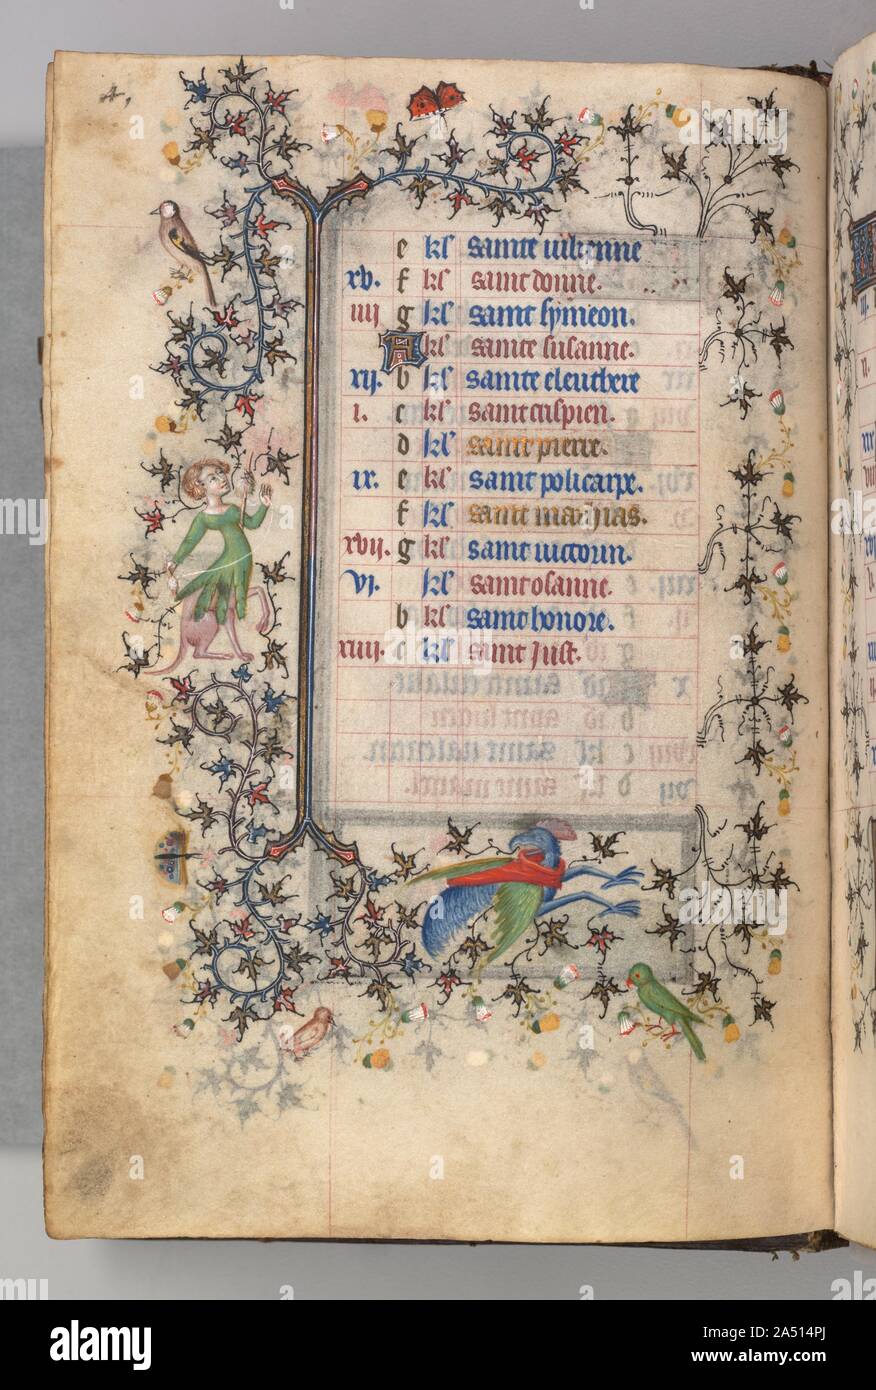 4,
e kl' sainte iulienne
xv. f kl' saint donne.
iiii g kl' saint symeon.
A kl' sainte susanne.
xii. b kl' sainte eleuthere
i. c kl' saint crispien.
d kl' saint pierre.
ix. e kl' saint policarpe.
f kl' saint mathias.
xvii. g kl' saint victorin.
vi. kl' saint osanne.
b kl' saint honore.
xiiii. c kl' saint Just.
alamy
Image ID: 2A514PJ
www.alamy.com